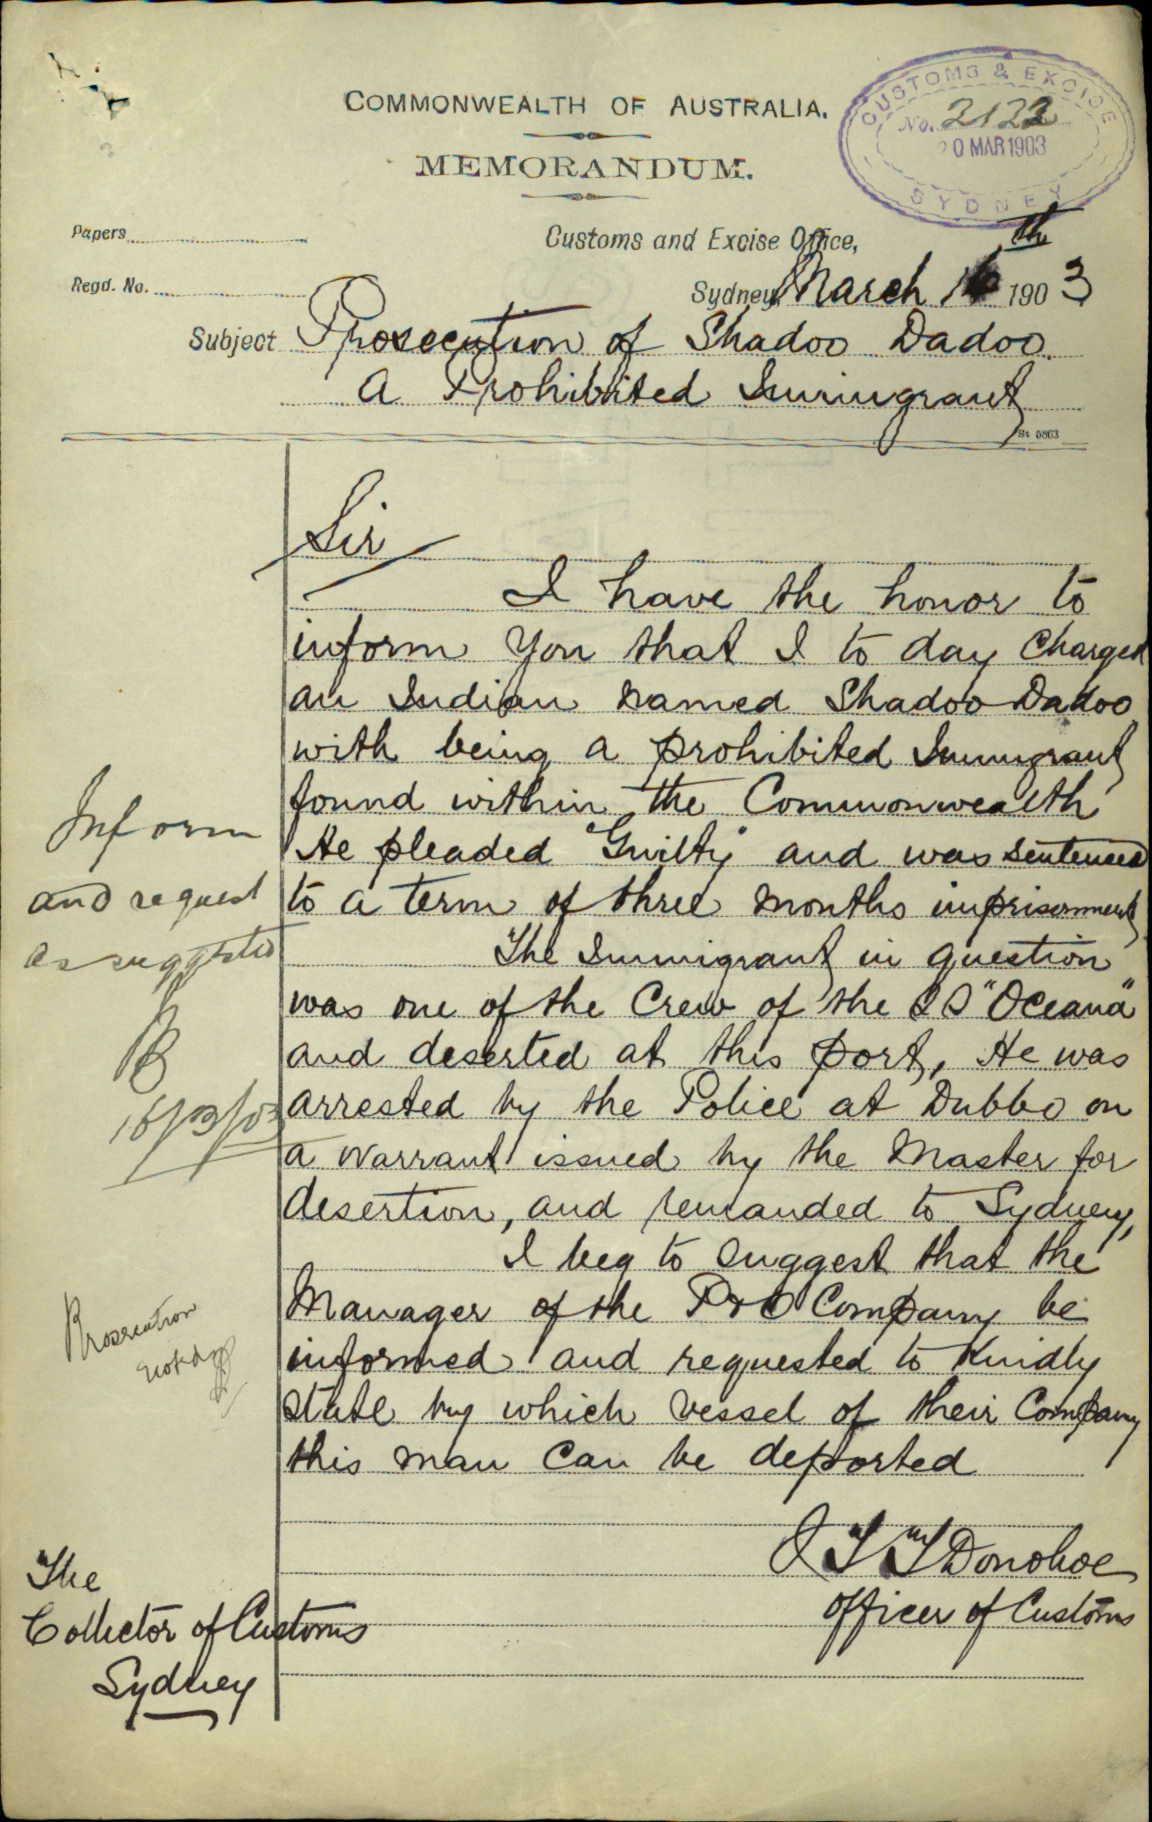 COMMONWEALTH OF AUSTRALIA.
MEMORANDUM.
CUSTOMS & EXCISE
No. 2122
0 MAR 1903
SYDNEY
Papers
Customs and Excise Office,
Regd. No.
Sydney, March 16th 1903
Subject Prosecution of Shadoo Dadoo.
a Prohibited Immigrant
St 5863
Sir
I have the honor to
inform you that I to day Charged
an Indian named Shadoo Dadoo
with being a prohibited Immigrant
found within the Commonwealth
He pleaded "Guilty" and was sentenced
to a term of three months imprisonment,
The Immigrant in question
was one of the Crew of the SS "Oceana"
and deserted at this port, He was
arrested by the Police at Dubbo on
a warrant issued by the Master for
desertion, and remanded to Sydney,
I beg to suggest that the
Manager of the P & O Company be
informed and requested to Kindly
state by which vessel of their Company
this man can be deported
J T T Donohoe
Officer of Customs
Inform
and request
as suggested
16/3/03
Prosecution
The
Collector of Customs
Sydney